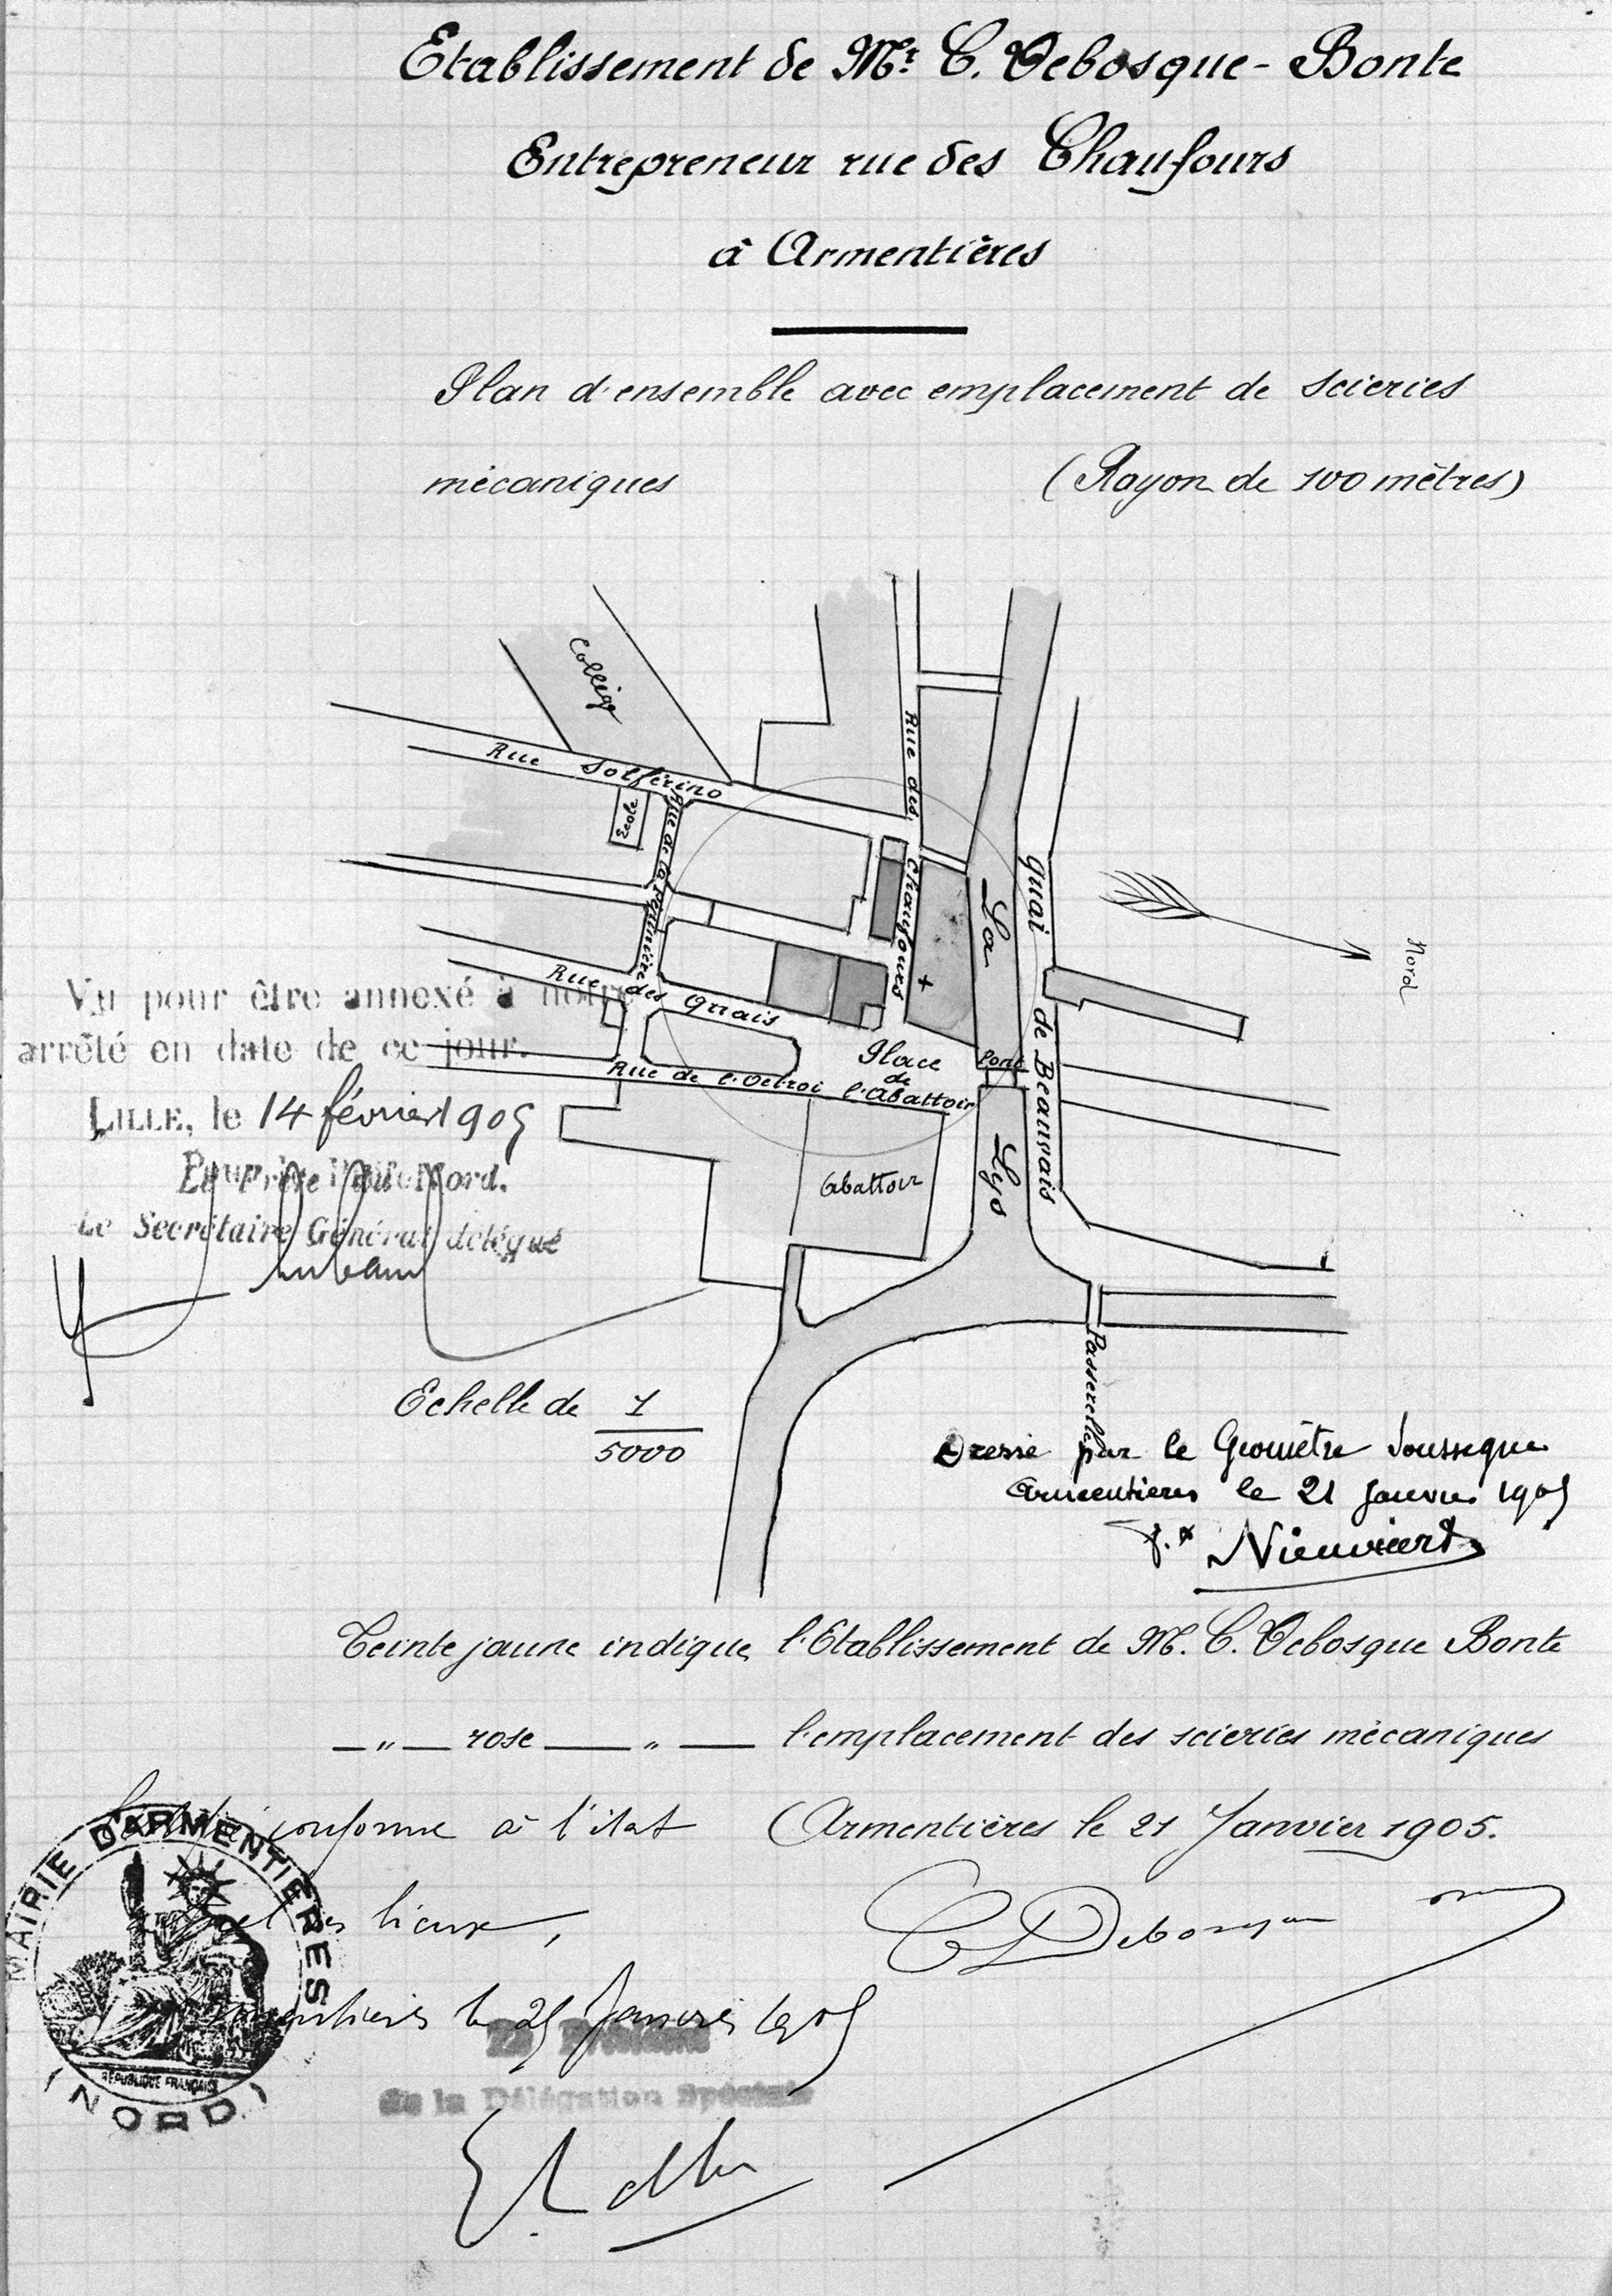 Etablissement de Mr. C. Debosque-Bonte
Entrepreneur rue des Chaufours
à Armentières
Plan d'ensemble avec emplacement de scieries
mécaniques (Rayon de 100 mètres)
Collège
Rue des Chaufours
Rue Solférino
Ecole
Rue de la Pépinière
Quai de Beauvais
La Lys
Nord
Rue des Quais
Place de l'Abattoir
Pont
Rue de l'Octroi
Abattoir
Passerelle
Vu pour être annexé à notre
arrêté en date de ce jour.
LILLE, le 14 février 1905
Le Secrétaire Général délégué
Echelle de 1
5000
Dressé par le Géomètre
Armentières le 21 Janvier 1905
Teinte jaune indique l'Etablissement de M. C. Debosque Bonte
—"— rose —"— l'emplacement des scieries mécaniques
conforme à l'état
Armentières le 21 Janvier 1905.
lieux,
C Debosque
Armentières le 25 Janvier 1905
de la Délégation Spéciale
MAIRIE D'ARMENTIERES
RÉPUBLIQUE FRANÇAISE
(NORD)